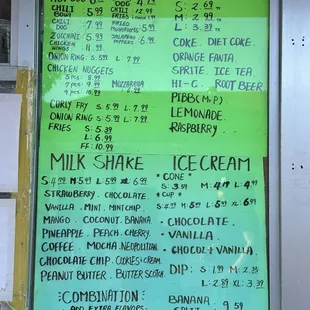 CHILI 5.99
BOWL
DOG 4.79
CHILI 12.99
FRIES
ZUCCHINI 5.99
CHICKEN
WINGS 11.99
FRIED
MUSHROOMS 5.99
JALAPENO
POPPERS 6.99
ONION RING S: 5.99 L: 7.99
CHICKEN NUGGETS
5 pcs
7 pcs 9.99
9 pcs 10.99
MOZZARELLA
L: 6.99
CURLY FRY S: 5.99 L: 7.99
ONION RING S: 5.99 L: 7.99
FRIES S: 5.39
L: 6.99
FF: 10.99
S: 2.69
M: 2.99
L: 3.39
COKE. DIET COKE.
ORANGE FANTA
SPRITE. ICE TEA.
HI-C. ROOT BEER
PIBB (M.P)
LEMONADE.
RASPBERRY.
MILK SHAKE
S 4.99 M 5.49 L 5.99 XL 6.99
STRAWBERRY. CHOCOLATE.
VANILLA. MINT. MINTCHIP.
MANGO. COCONUT. BANANA.
PINEAPPLE. PEACH. CHERRY.
COFFEE. MOCHA. NEOPOLITIAN.
CHOCOLATE CHIP. COOKIES & CREAM.
PEANUT BUTTER. BUTTER SCOTCH.
:COMBINATION:
ADD EXTRA FLAVORS
ICECREAM
"CONE"
S: 3.59 M: 4.19 L: 4.99
"CUP"
S: 4.99 M: 5.49 L: 5.99 XL: 6.99
• CHOCOLATE.
• VANILLA.
• CHOCOL & VANILLA.
DIP: S: 1.99 M: 2.35
L: 2.89 XL: 3.39
BANANA
SPLIT 9.59